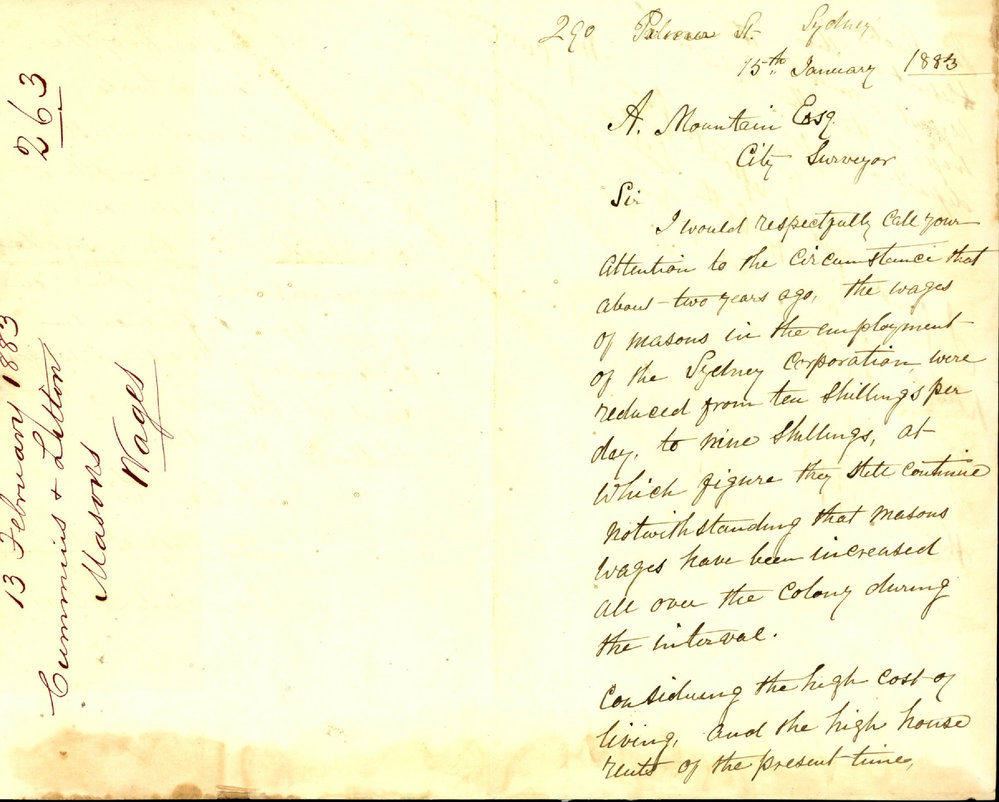 263
13 February 1883
Cummins & Litton
Masons
Wages
290 Palmer St. Sydney
15th January 1883
A. Mountain Esq.
City Surveyor
Sir
I would respectfully call your
attention to the circumstance that
about two years ago, the wages
of masons in the employment
of the Sydney Corporation, were
reduced from ten shillings per
day, to nine shillings, at
which figure they still continue
notwithstanding that masons
wages have been increased
all over the Colony during
the interval.
Considering the high cost of
living, and the high house
rents of the present time,